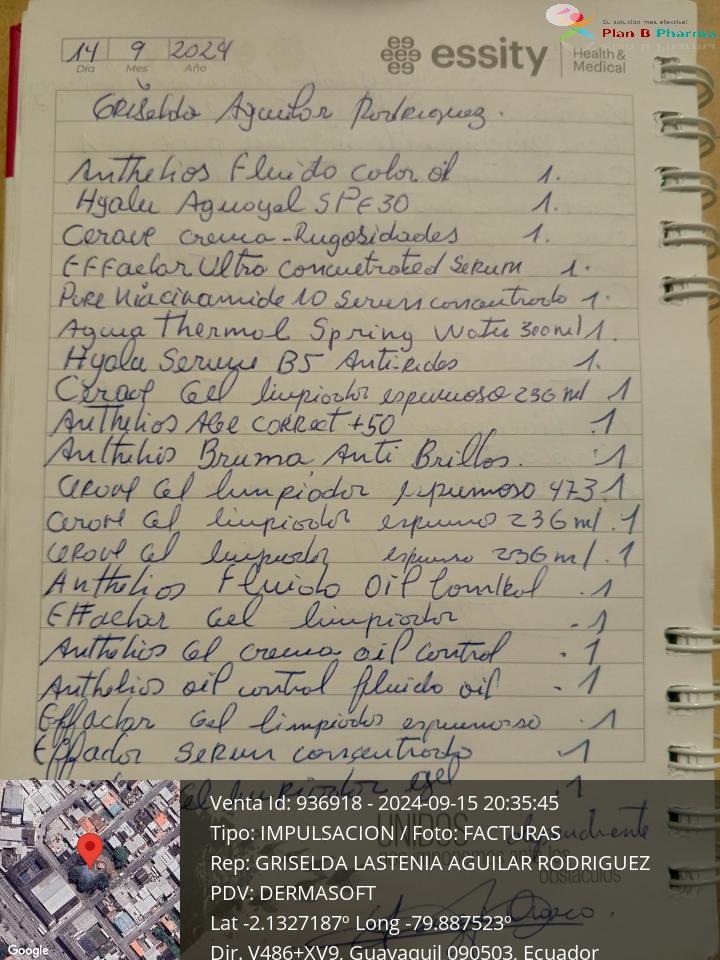 Su solución más efectiva!
Plan B Pharma
14 9 2024
Día Mes Año
essity Health & Medical
Griselda Aguilar Rodriguez.
Anthelios Fluido color oil 1.
Hyalu Aguagel SPF30 1.
Cerave crema-Rugosidades 1.
EFFaclar Ultra Concnetrated Serum 1.
Pure Niacinamide 10 Serum concentrado 1.
Agua Thermal Spring Water 300ml 1.
Hyalu Serum B5 Anti-rides 1.
Cerave Gel limpiador espumoso 236 ml 1
Anthelios Age correct +50 .1
Anthelios Bruma Anti Brillos. .1
Cerave Gel limpiador espumoso 473.1
Cerave Gel limpiador espumo 236 ml .1
Cerave Gel limpiador espumo 236 ml .1
Anthelios Fluido Oil Control .1
Effaclar Gel limpiador .1
Anthelios Gel crema oil control .1
Anthelios oil control fluido oil .1
Effaclar Gel limpiador espumosso .1
Effaclar Serum concentrado .1
Gel limpiador .1
UNIDOS
obstáculos
Venta Id: 936918 - 2024-09-15 20:35:45
Tipo: IMPULSACION / Foto: FACTURAS
Rep: GRISELDA LASTENIA AGUILAR RODRIGUEZ
PDV: DERMASOFT
Lat -2.1327187º Long -79.887523º
Dir. V486+XV9, Guayaquil 090503, Ecuador
Google